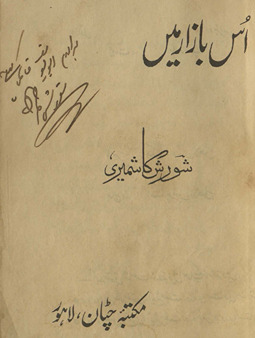 اُس بازار میں
شورش کاشمیری
مکتبۂ چٹان، لاہور